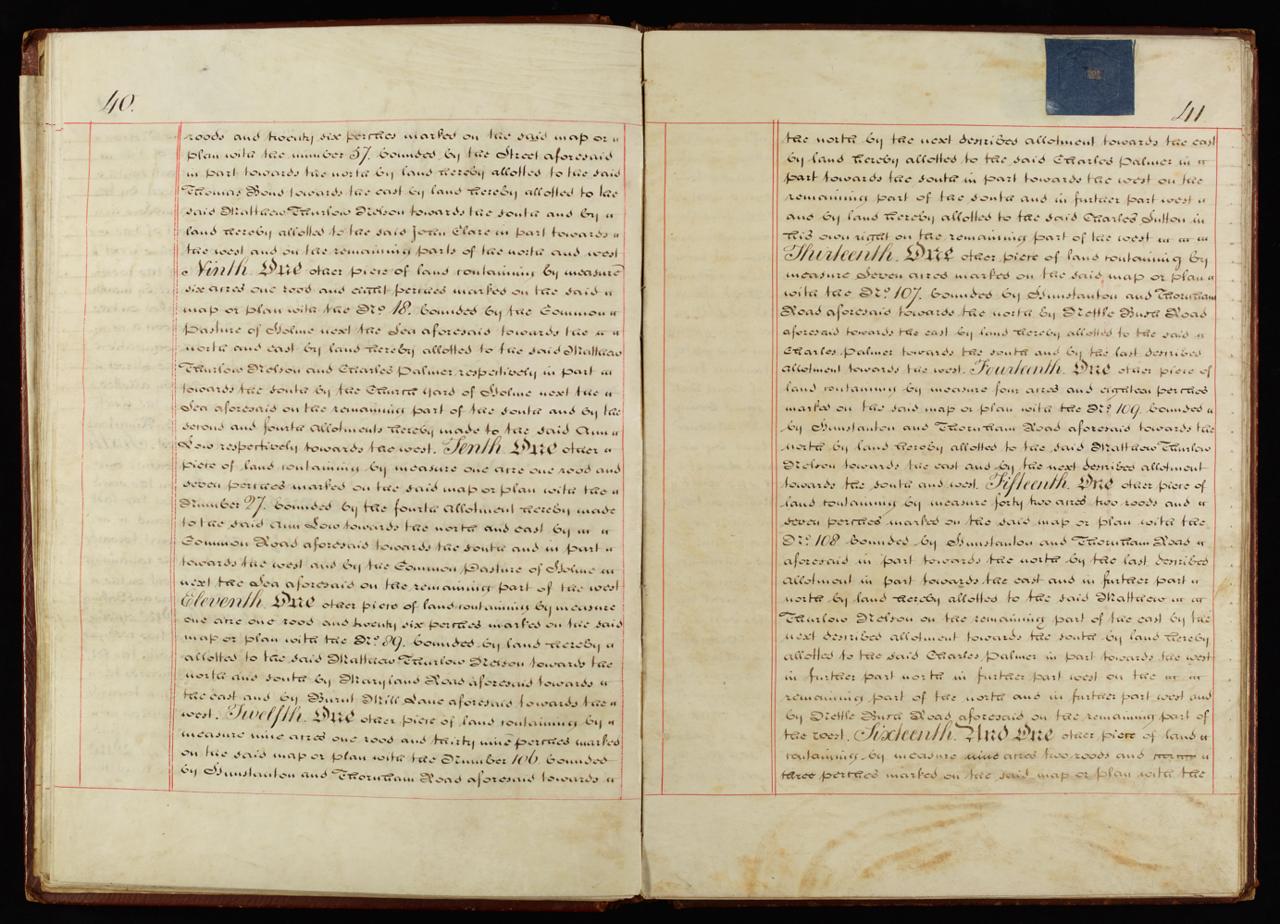 40.
roods and twenty six perches marked on the said map or "
plan with the number 57. bounded by the Street aforesaid
in part towards the north by land hereby allotted to the said
Thomas Bond towards the east by land hereby allotted to the
said Matthew Thurlow Nelson towards the south and by "
land hereby allotted to the said John Clare in part towards "
the west and on the remaining parts of the north and west
Ninth One other piece of land containing by measure
six acres one rood and eight perches marked on the said "
map or plan with the No. 18. bounded by the Common "
Pasture of Holme next the Sea aforesaid towards the " "
north and east by land hereby allotted to the said Matthew
Thurlow Nelson and Charles Palmer respectively in part "
towards the south by the Church Yard of Holme next the "
Sea aforesaid on the remaining part of the south and by the
second and fourth Allotments hereby made to the said Ann "
Low respectively towards the west. Tenth One other "
piece of land containing by measure one acre one rood and
seven perches marked on the said map or plan with the "
Number 27. bounded by the fourth Allotment hereby made
to the said Ann Low towards the north and east by " "
Common Road aforesaid towards the south and in part "
towards the west and by the Common Pasture of Holme "
next the Sea aforesaid on the remaining part of the west
Eleventh One other piece of land containing by measure
one acre one rood and twenty six perches marked on the said
map or plan with the No. 89. bounded by land hereby "
allotted to the said Matthew Thurlow Nelson towards the
north and south by Maryland Road aforesaid towards "
the east and by Burnt Mill Lane aforesaid towards the "
west. Twelfth One other piece of land containing by "
measure nine acres one rood and thirty nine perches marked
on the said map or plan with the Number 106. bounded
by Hunstanton and Thornham Road aforesaid towards "
41
the north by the next described allotment towards the east
by land hereby allotted to the said Charles Palmer in "
part towards the south in part towards the west on the
remaining part of the south and in further part west "
and by land hereby allotted to the said Charles Sutton in
his own right on the remaining part of the west " " "
Thirteenth One other piece of land containing by
measure seven acres marked on the said map or plan "
with the No. 107. bounded by Hunstanton and Thornham
Road aforesaid towards the north by Nettle Bush Road
aforesaid towards the east by land hereby allotted to the said "
Charles Palmer towards the south and by the last described
allotment towards the west. Fourteenth One other piece of
land containing by measure four acres and eighteen perches
marked on the said map or plan with the No. 109. bounded "
by Hunstanton and Thornham Road aforesaid towards the
north by land hereby allotted to the said Matthew Thurlow
Nelson towards the east and by the next described allotment
towards the south and west. Fifteenth One other piece of
land containing by measure forty two acres two roods and "
seven perches marked on the said map or plan with the
No. 108 bounded by Hunstanton and Thornham Road "
aforesaid in part towards the north by the last described
Allotment in part towards the east and in further part "
north by land hereby allotted to the said Matthew " "
Thurlow Nelson on the remaining part of the east by the
next described allotment towards the south by land hereby
allotted to the said Charles Palmer in part towards the west
in further part north in further part west on the " "
remaining part of the north and in further part west and
by Nettle Bush Road aforesaid on the remaining part of
the west. Sixteenth And One other piece of land "
containing by measure nine acres two roods and "
three perches marked on the said map or plan with the